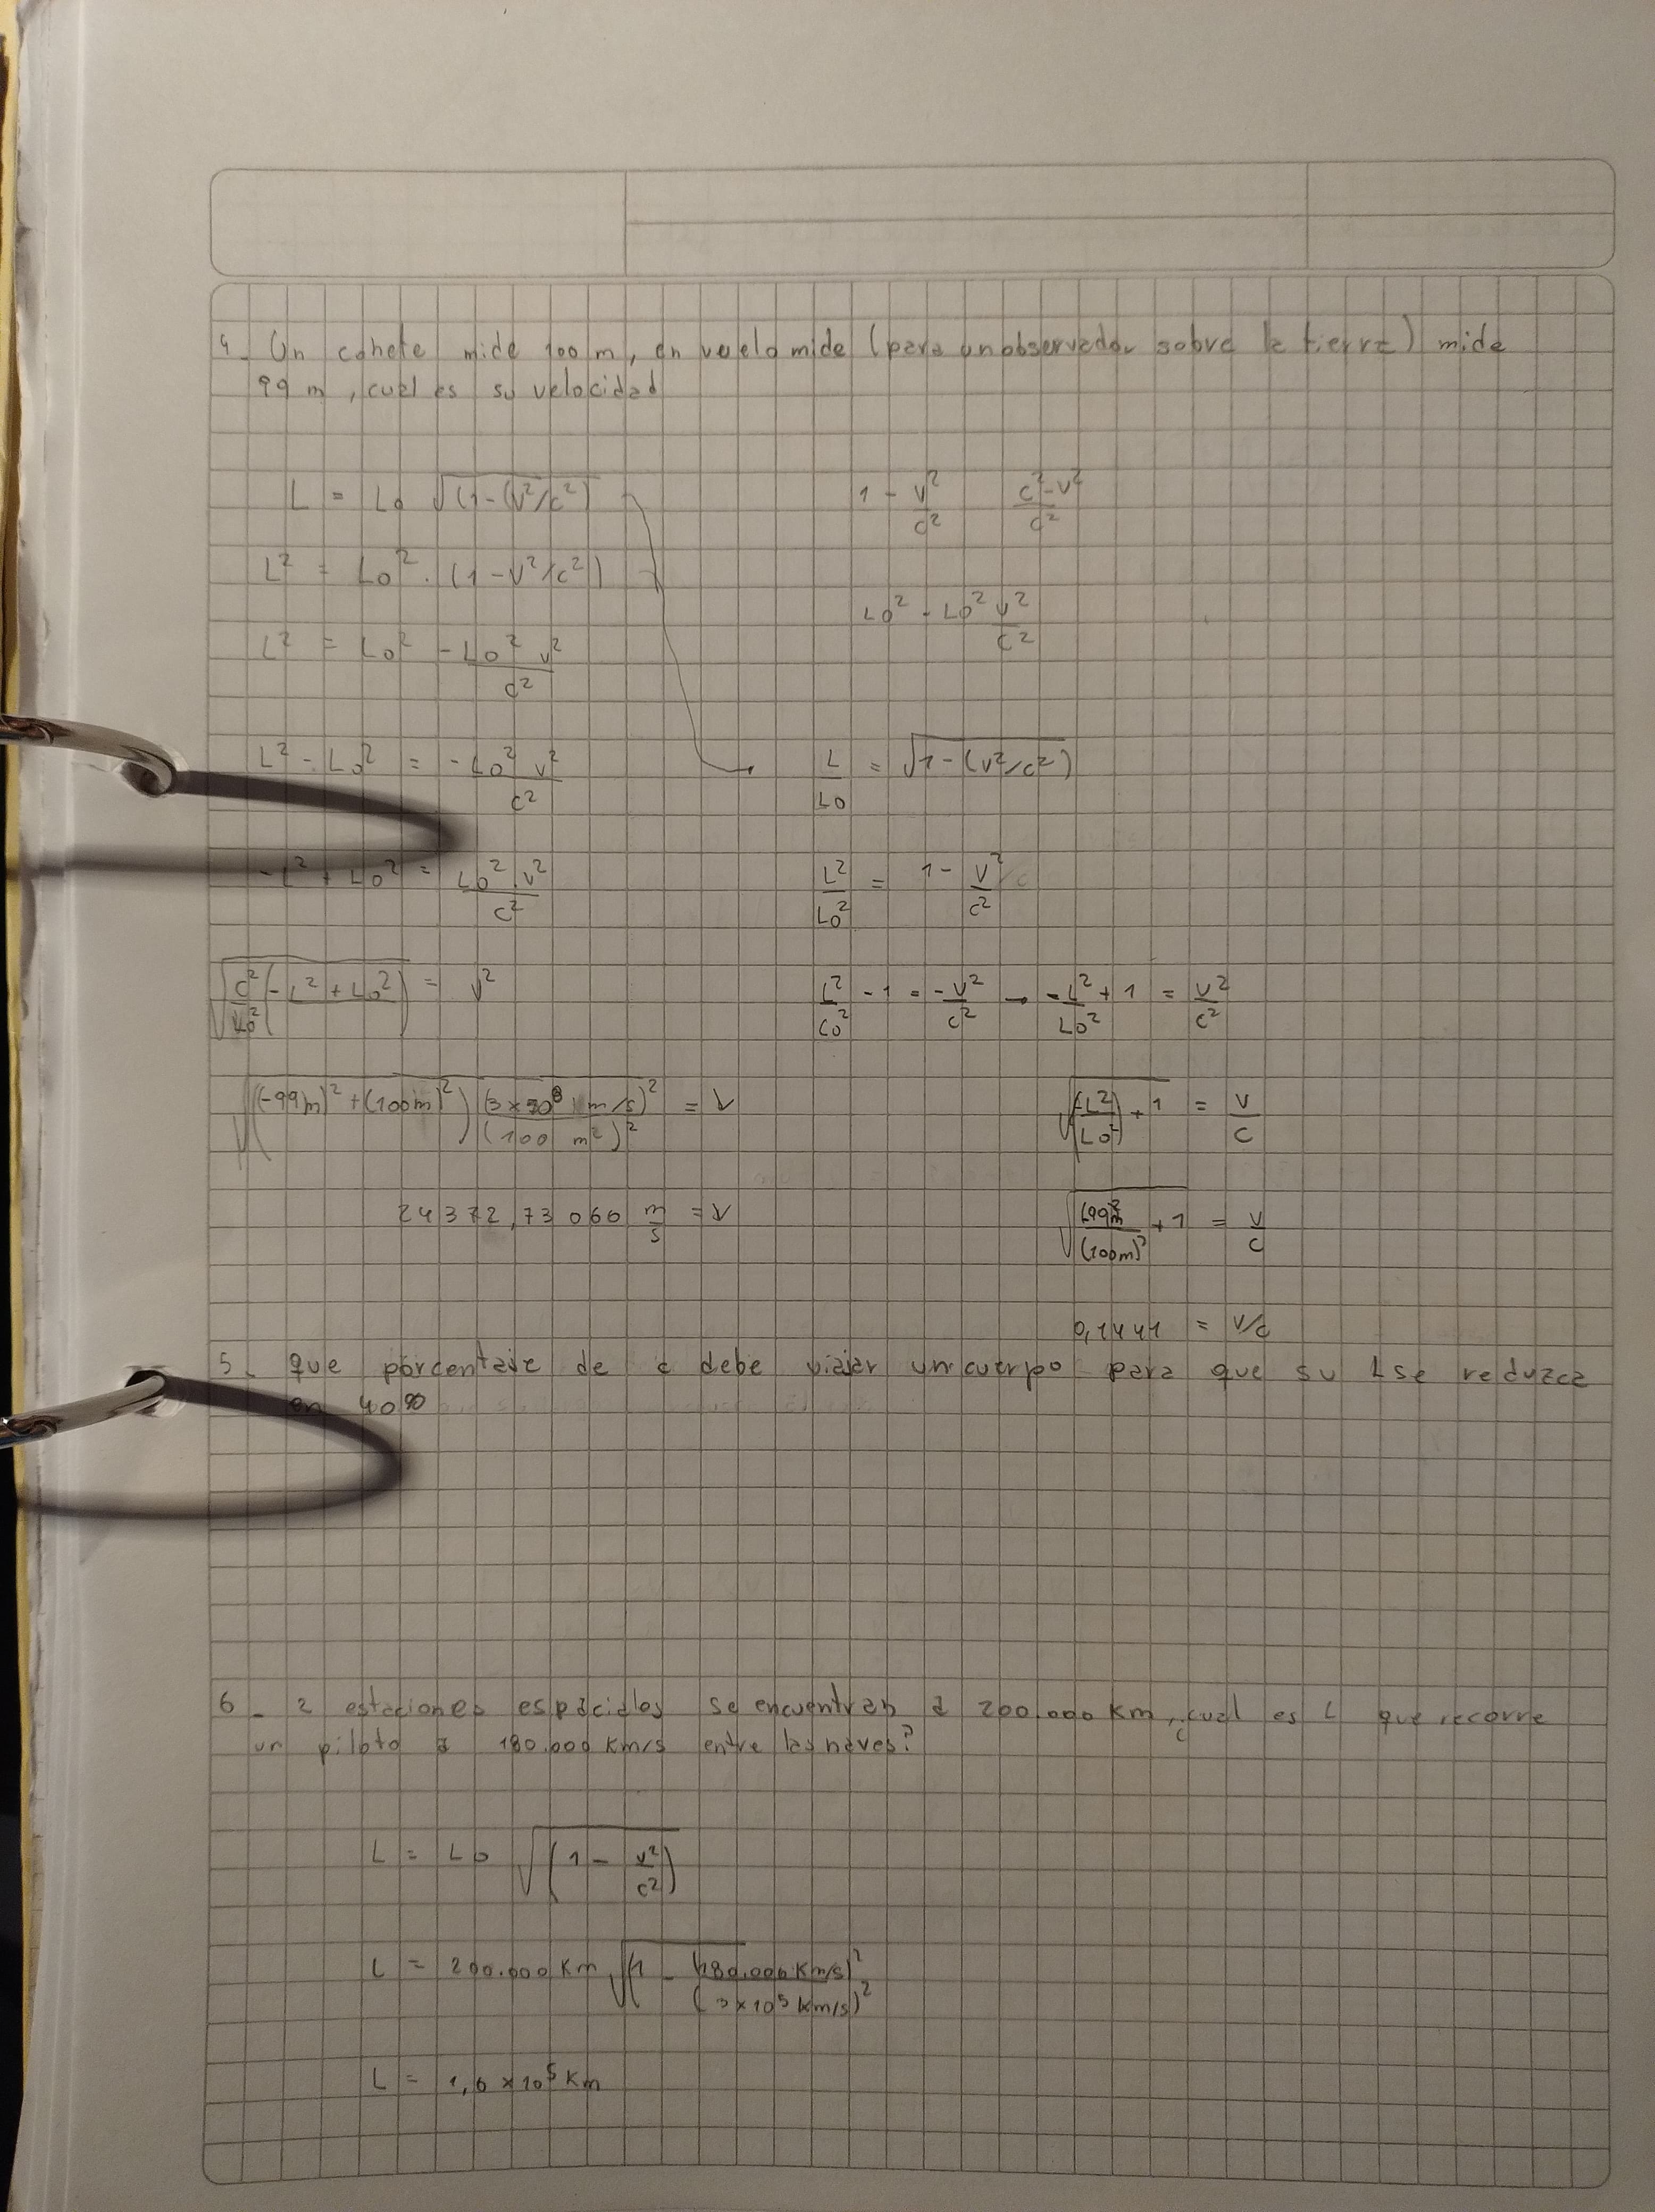 4_ Un cohete mide 100 m, en vuelo mide (para un observador sobre la tierra) mide
99 m, cual es su velocidad
L = Lo √(1-(v²/c²)
1 - v²/c²   c²-v²/c²
L² = Lo² · (1-v²/c²)
Lo² - Lo² v²/c²
L² = Lo² - Lo² v²/c²
L² - Lo² = -Lo² v²/c²
L/Lo = √1-(v²/c²)
-L² + Lo² = Lo² · v²/c²
L²/Lo² = 1 - v²/c²
√c²/Lo² (-L² + Lo²) = v²
L²/Lo² - 1 = -v²/c² → -L²/Lo² + 1 = v²/c²
√((-99m)² + (100m)²) (3x10⁸ m/s)²/(100 m²)² = v
√(L²/Lo²) + 1 = v/c
24372,73060 m/s = v
√(99m)²/(100m)² + 1 = v/c
0,1441 = v/c
5_ que porcentaje de c debe viajar un cuerpo para que su L se reduzca
en 40%
6_ 2 estaciones espaciales se encuentran a 200.000 Km, cual es L que recorre
un piloto a 180.000 Km/s entre las naves?
L = Lo √(1 - v²/c²)
L = 200.000 Km √(1 - (180.000 Km/s)²/(3x10⁵ Km/s)²
L = 1,6 x 10⁵ Km